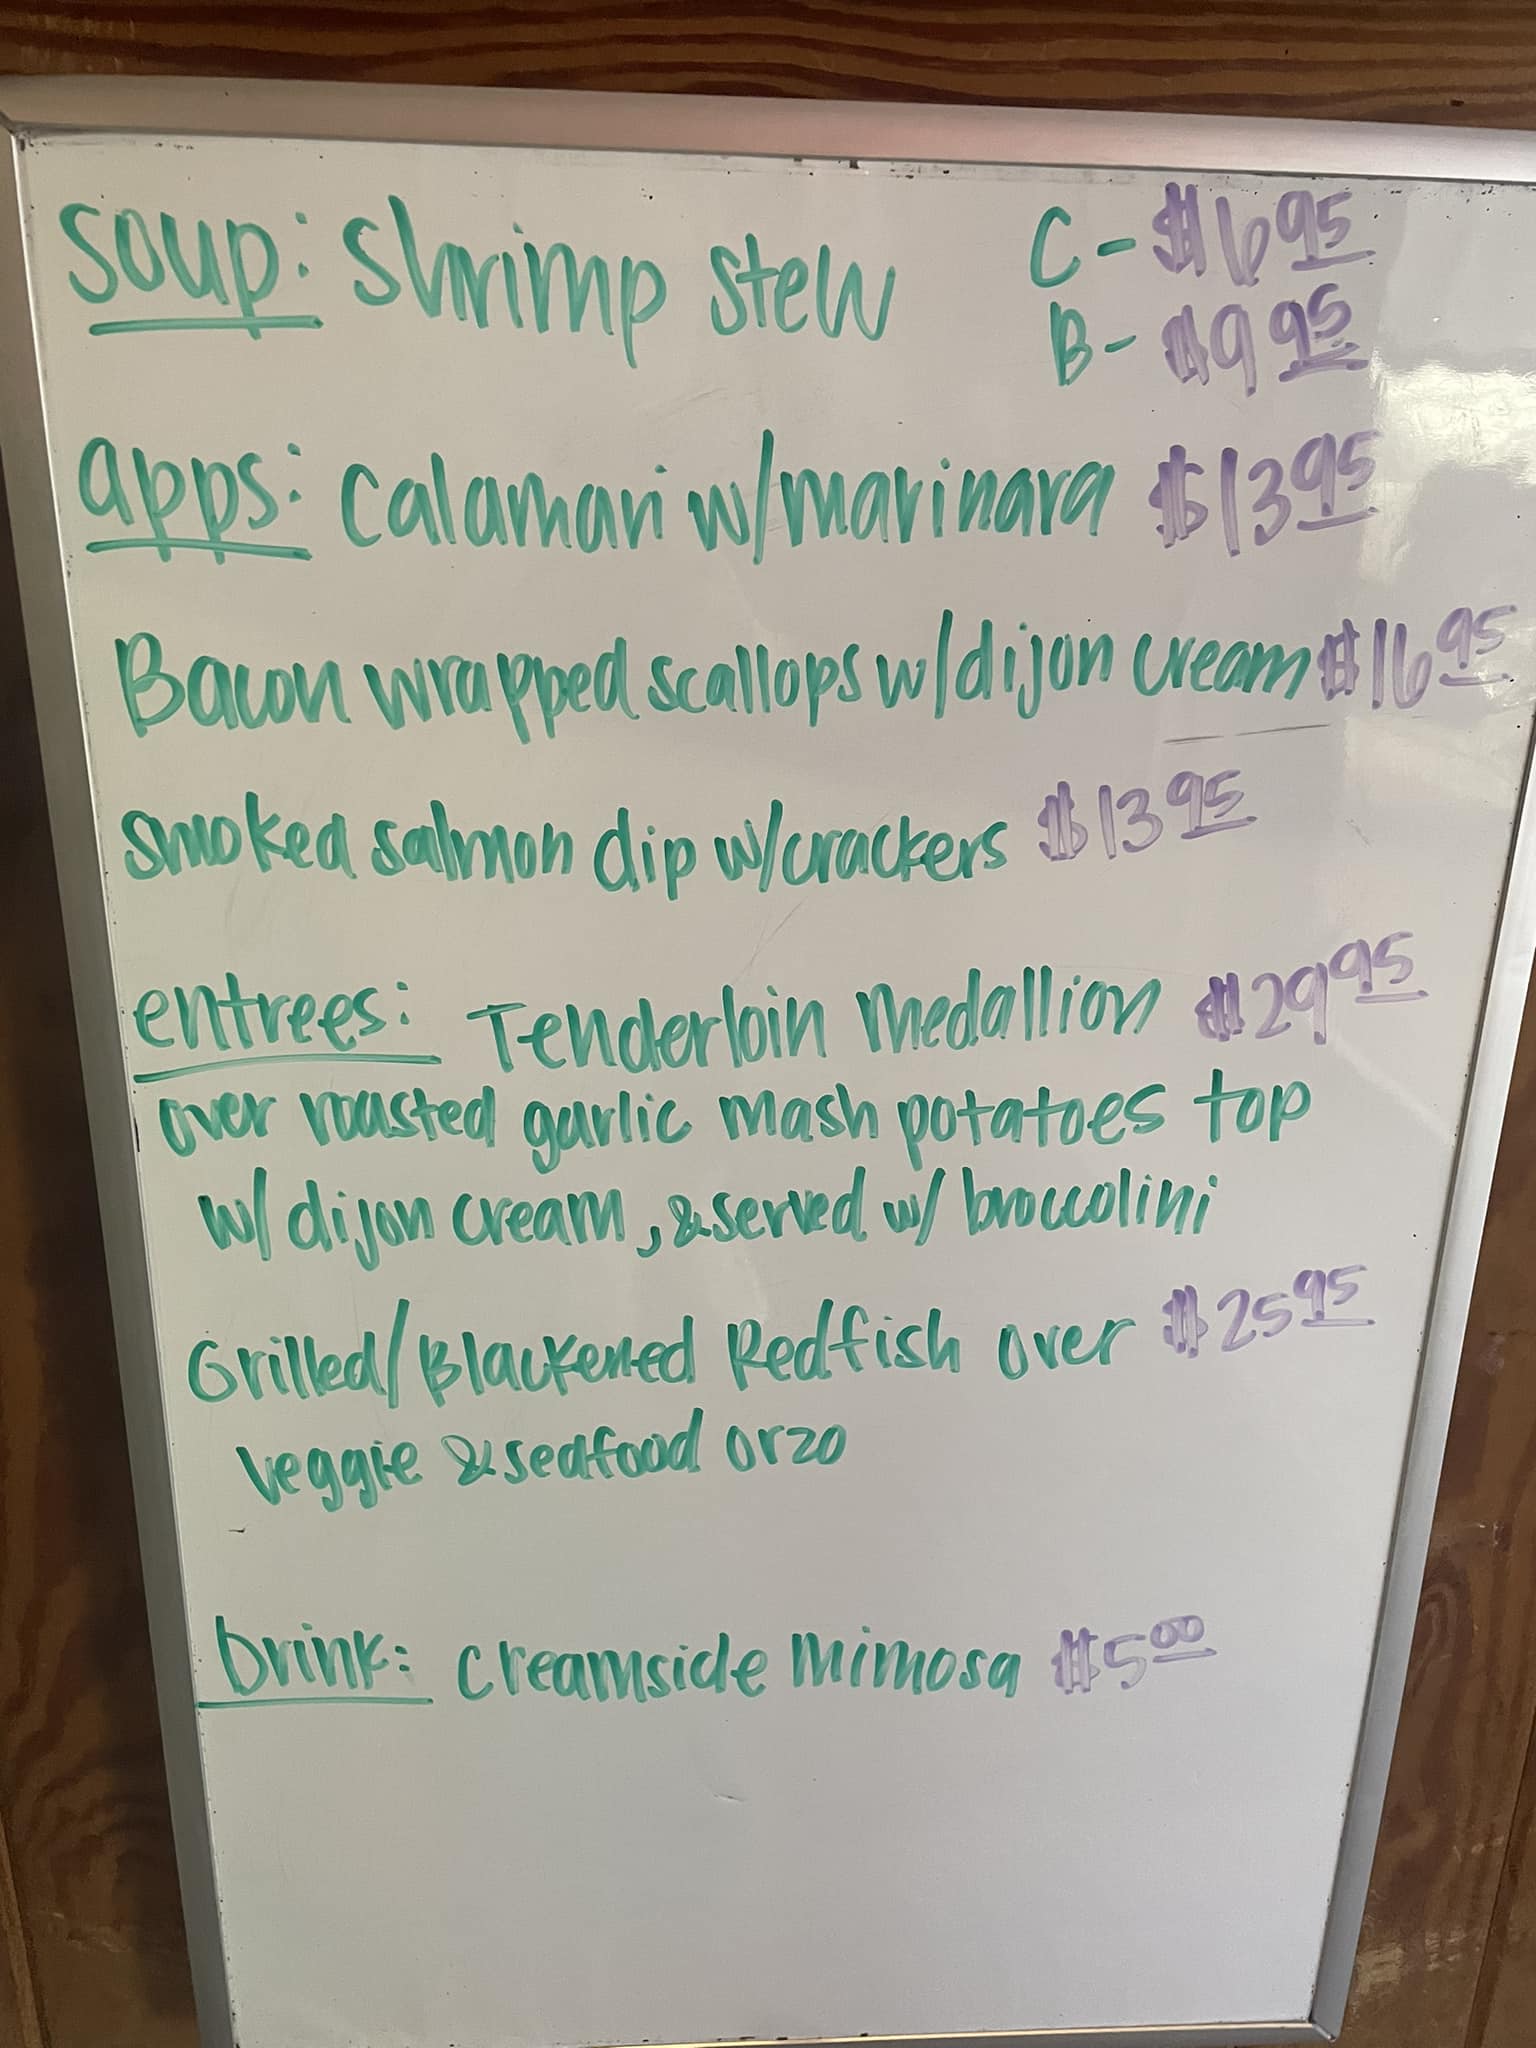 soup: shrimp stew C- $6.95
B- $9.95
apps: calamari w/marinara $13.95
Bacon wrapped scallops w/dijon cream $16.95
smoked salmon dip w/crackers $13.95
entrees: Tenderloin Medallion $29.95
over roasted garlic mash potatoes top
w/ dijon cream, & served w/ broccolini
Grilled/Blackened Redfish over $25.95
veggie & seafood orzo
Drink: creamside mimosa $5.00